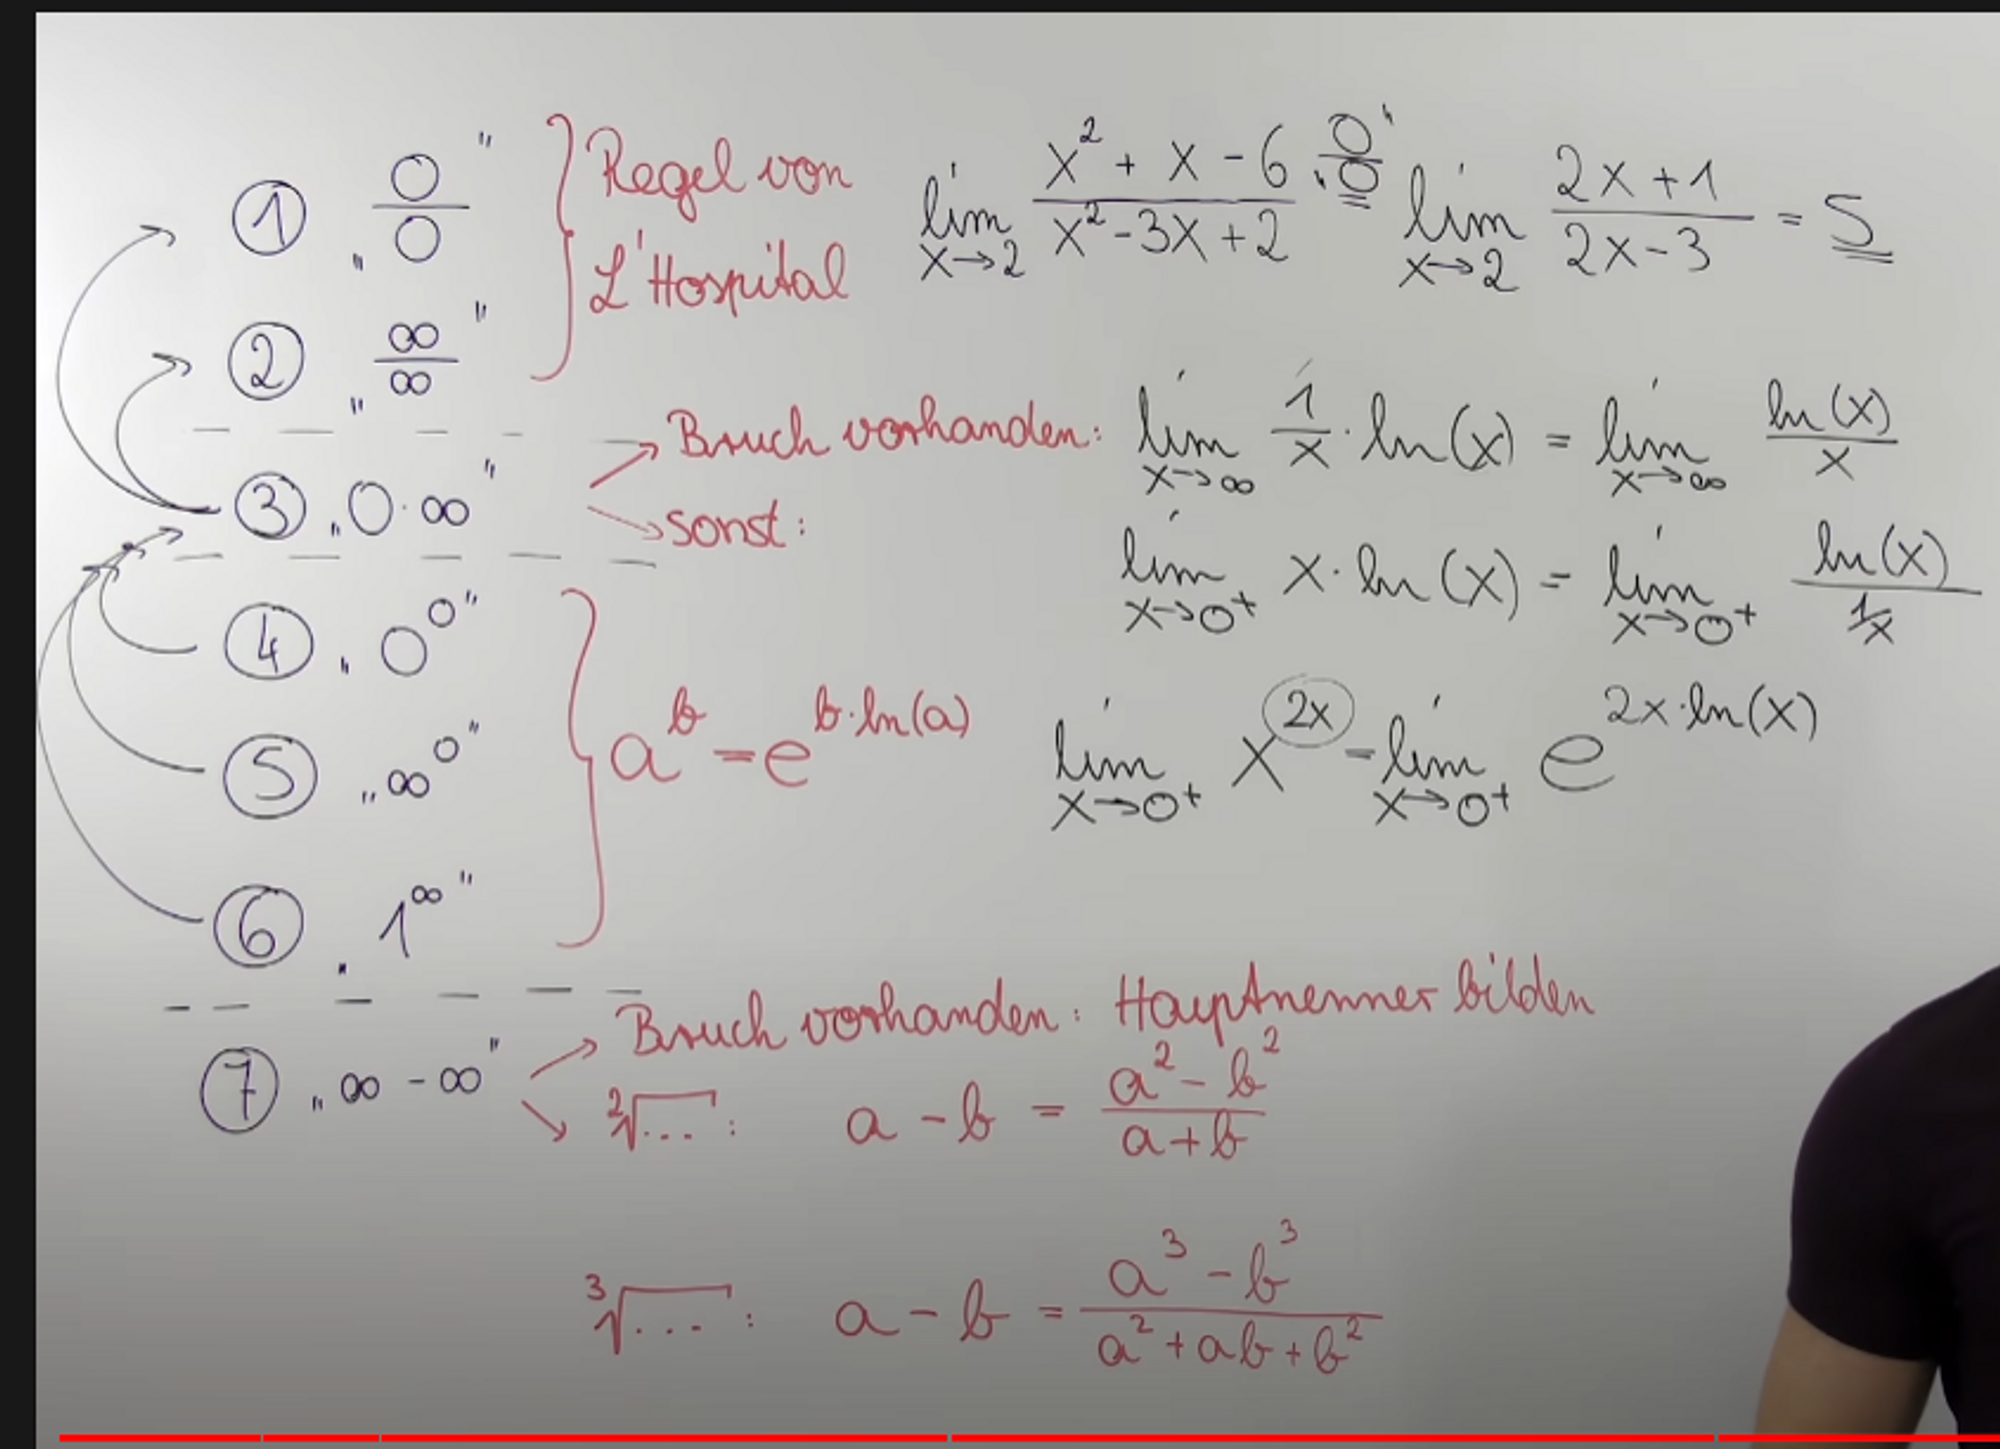 ① „0/0" } Regel von L'Hospital
lim x→2 (x² + x - 6)/(x² - 3x + 2) „0/0" = lim x→2 (2x + 1)/(2x - 3) = 5
② „∞/∞"
③ „0·∞"
→ Bruch vorhanden: lim x→∞ 1/x · ln(x) = lim x→∞ ln(x)/x
→ sonst: lim x→0⁺ x · ln(x) = lim x→0⁺ ln(x)/(1/x)
④ „0⁰"
⑤ „∞⁰" } a^b = e^(b·ln(a)) lim x→0⁺ x^(2x) = lim x→0⁺ e^(2x·ln(x))
⑥ „1^∞"
⑦ „∞ - ∞"
→ Bruch vorhanden: Hauptnenner bilden
→ ²√...: a - b = (a² - b²)/(a + b)
³√...: a - b = (a³ - b³)/(a² + ab + b²)